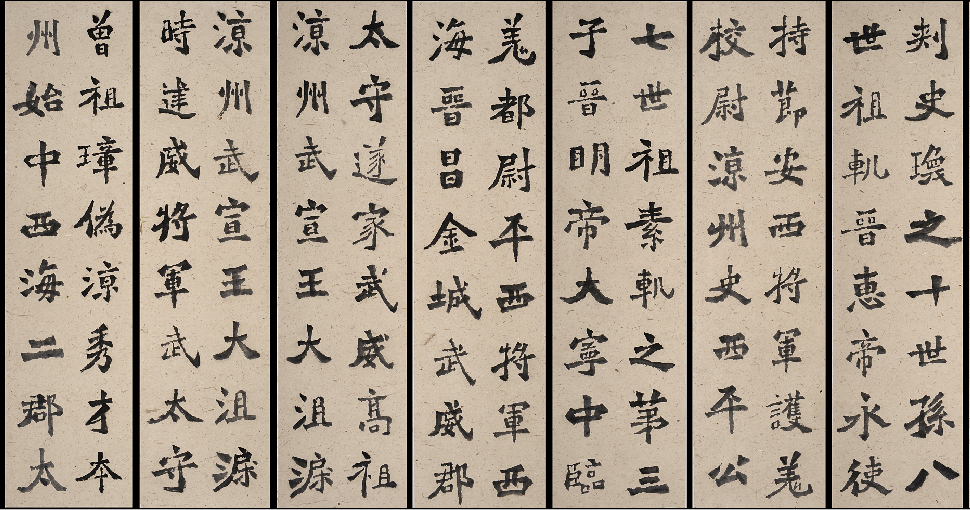 刾史瓊之十世孫八
世祖軌晉惠帝永使
持節安西將軍護羌
校尉涼州史西平公
七世祖素軌之第三
子晉明帝大寧中臨
羌都尉平西將軍西
海晉昌金城武威郡
太守遂家武威高祖
涼州武宣王大沮渠
涼州武宣王大沮渠
時建威將軍武太守
曾祖璋偽涼秀才本
州始中西海二郡太